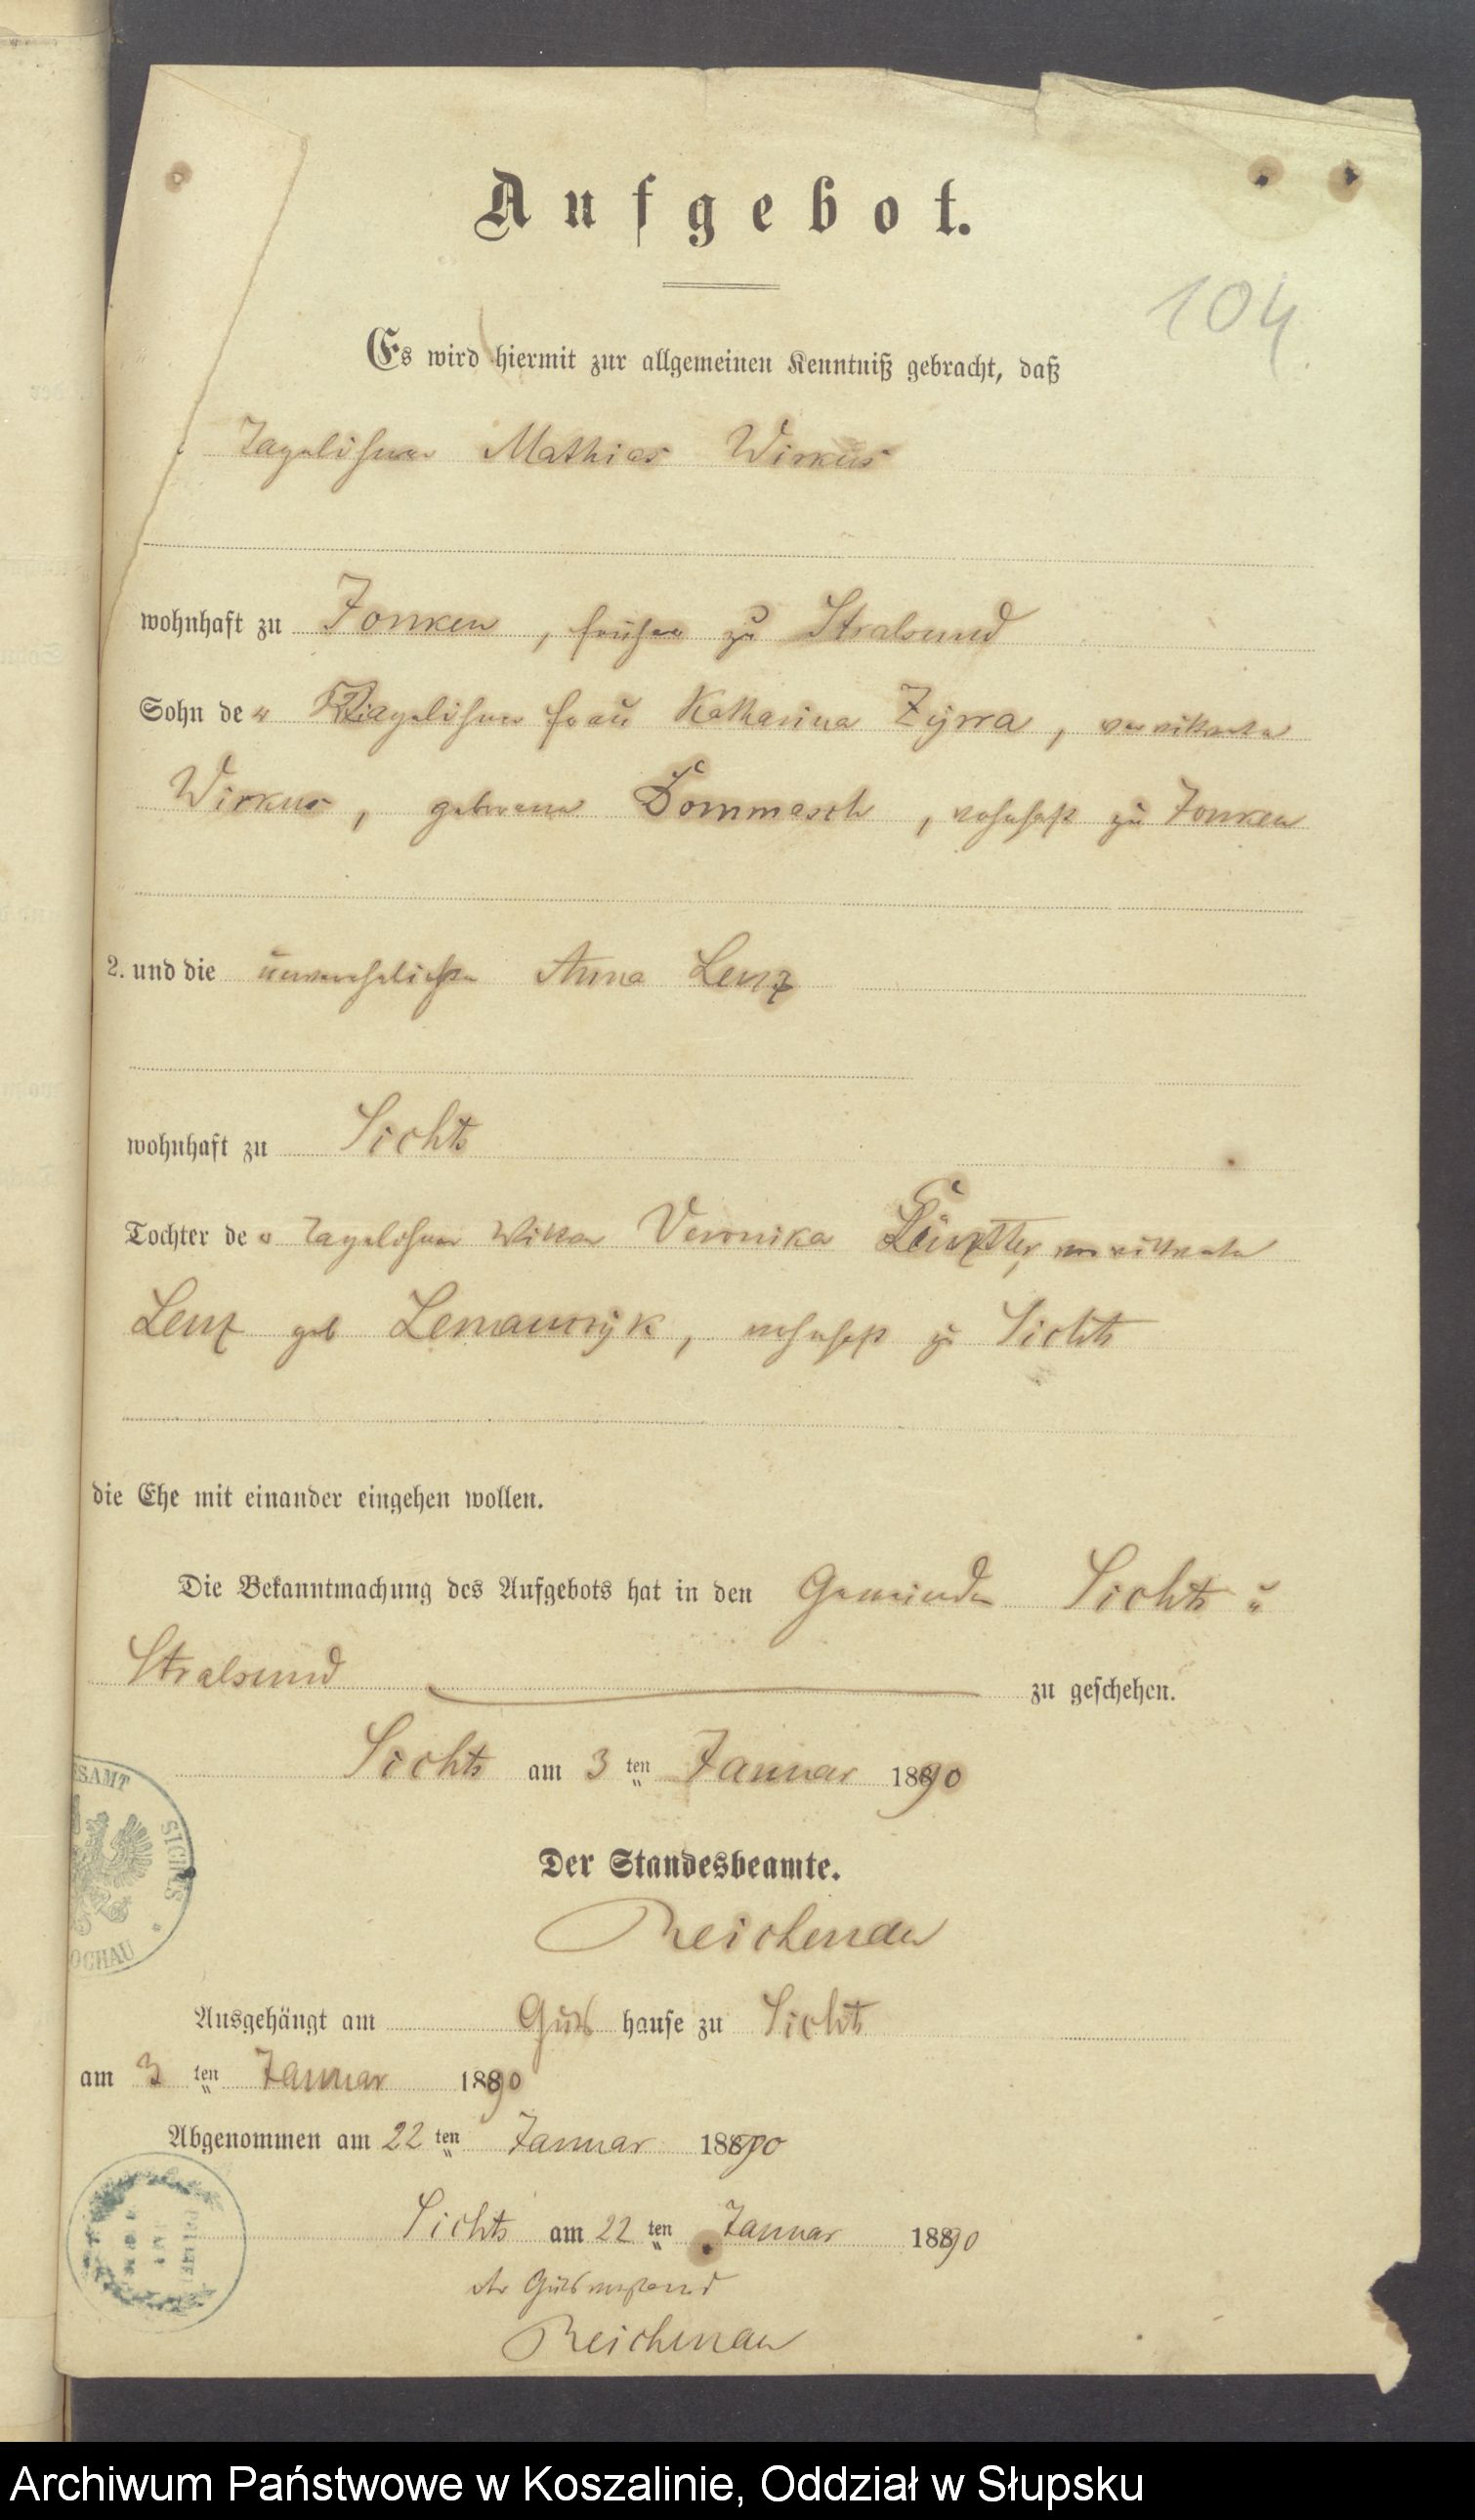 Aufgebot.
104
Es wird hiermit zur allgemeinen Kenntniß gebracht, daß
Tagelöhner Mathias Wirkus
wohnhaft zu Jonken, früher zu Stralsund
Sohn der Tagelöhner frau Katharina Zyrra, verwittwete
Wirkus, geborene Dommasch, wohnhaft zu Jonken
2. und die unverehelichte Anna Lenz
wohnhaft zu Sichts
Tochter der Tagelöhner Wittwe Veronika verwittwete
Lenz geb Lemanczyk, wohnhaft zu Sichts
die Ehe mit einander eingehen wollen.
Die Bekanntmachung des Aufgebots hat in den Gemeinden Sichts u
Stralsund zu geschehen.
Sichts am 3 ten Januar 1890
SAMT SICHTS
OCHAU
Der Standesbeamte.
Reichenau
Ausgehängt am Guts hause zu Sichts
am 3 ten Januar 1890
Abgenommen am 22 ten Januar 1890
Sichts am 22 ten Januar 1890
der Gutsvorstand
Reichenau
Archiwum Państwowe w Koszalinie, Oddział w Słupsku